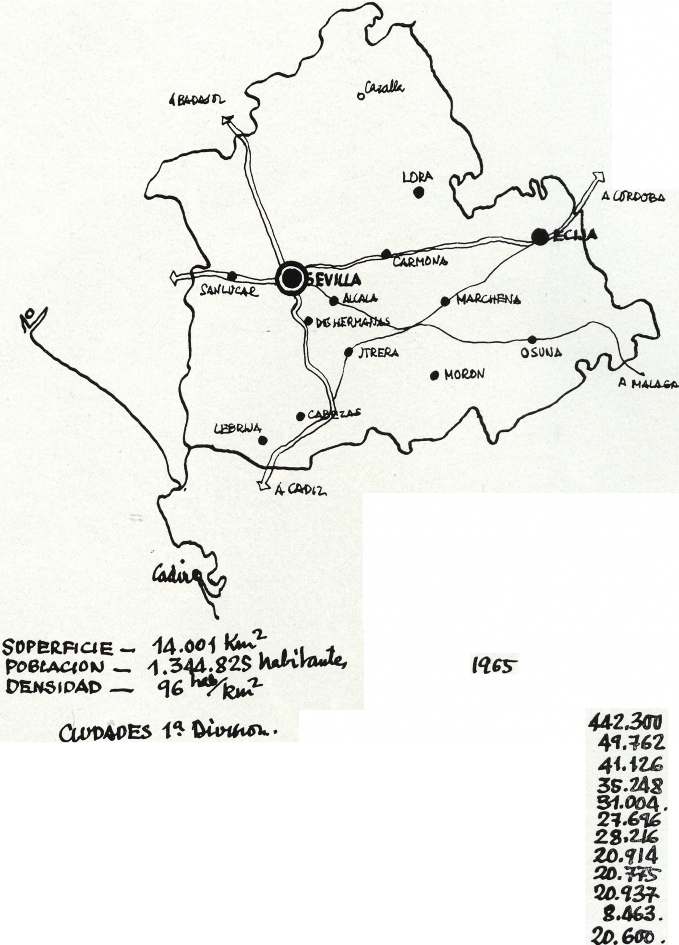 Cazalla
A BADAJOZ
LORA
A CORDOBA
ECIJA
CARMONA
SEVILLA
SANLUCAR
ALCALA
MARCHENA
DOS HERMANAS
UTRERA
OSUNA
MORON
A MALAGA
CABEZAS
LEBRIJA
A CADIZ
Cadiz
SUPERFICIE — 14.001 Km²
POBLACION — 1.344.825 habitantes
DENSIDAD — 96 hab/km²
1965
CIUDADES 1ª Division.
442.300
49.762
41.126
35.248
31.004.
27.696
28.216
20.914
20.775
20.937
8.463.
20.600.